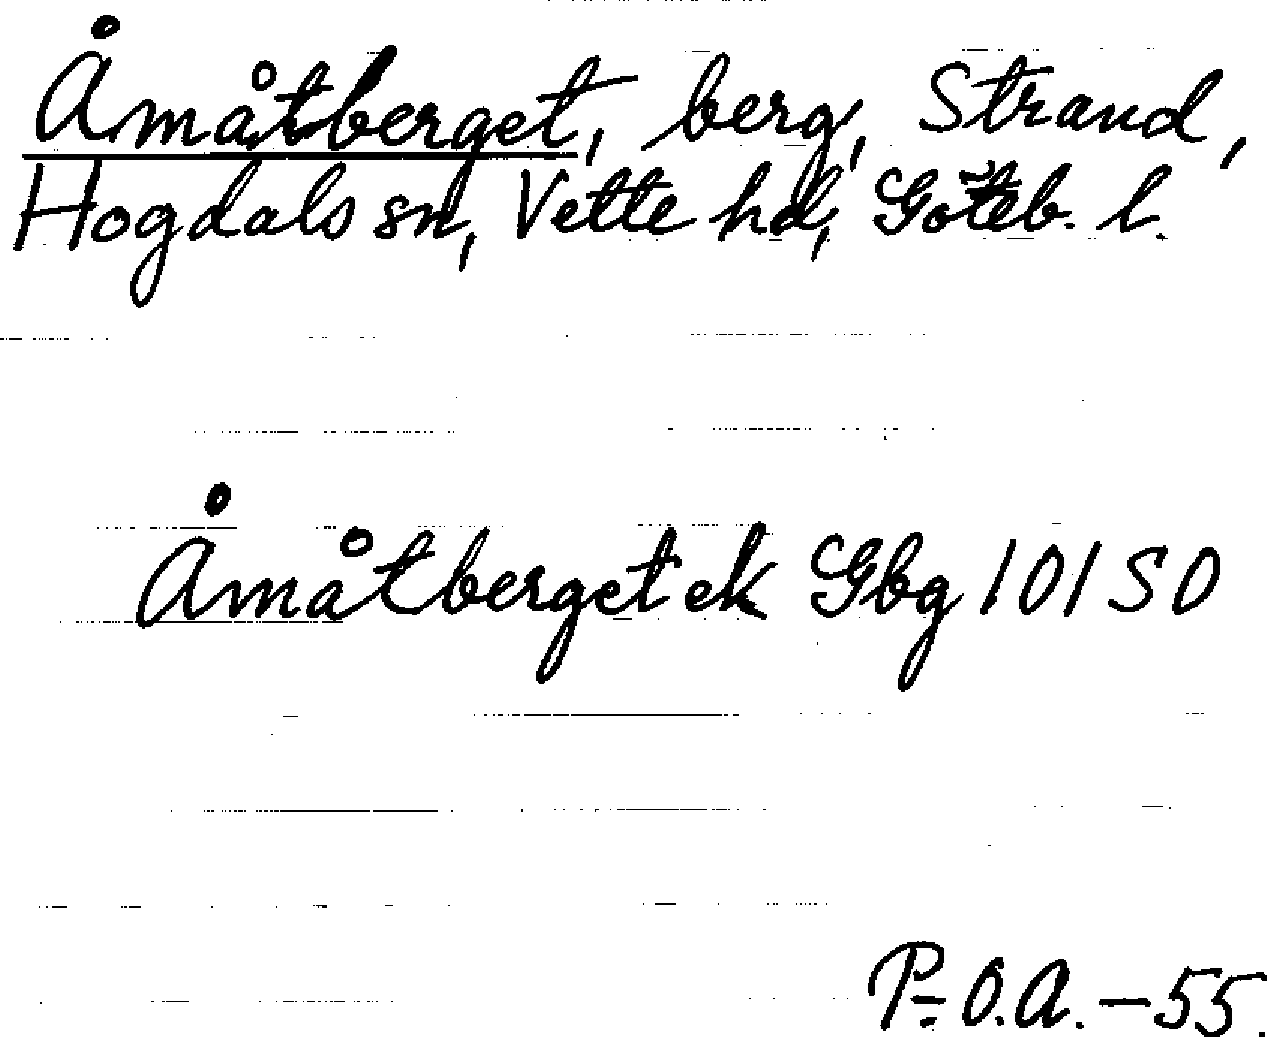 Åmåtberget, berg, Strand,
Hogdals sn, Vette hd, Göteb. l.
Åmåtberget ek Gbg 101 SO
P-O.A. - 55.